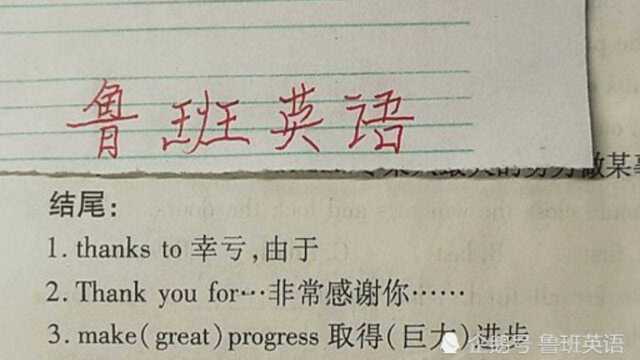 鲁班英语
做某事
结尾:
1. thanks to 幸亏,由于
2. Thank you for…非常感谢你……
3. make(great)progress 取得(巨大)进步
企鹅号 鲁班英语